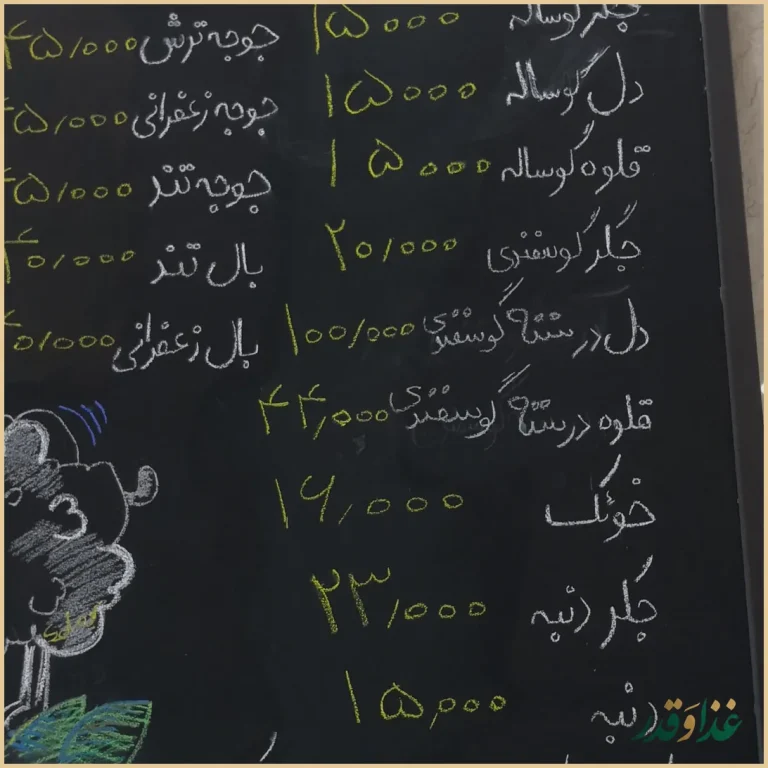 جگر گوساله ۱۵۰۰۰
دل گوساله ۱۵۰۰۰
قلوه گوساله ۱۵۰۰۰
جگر گوسفندی ۲۰/۰۰۰
دل درسته گوسفندی ۱۰۰/۰۰۰
قلوه درسته گوسفندی ۴۴,۰۰۰
خوئک ۱۶/۰۰۰
جگر دنبه ۲۳/۰۰۰
دنبه ۱۵,۰۰۰
جوجه ترش ۴۵/۰۰۰
جوجه زعفرانی ۵/۰۰۰
جوجه تند ۵/۰۰۰
بال تند ۴۰/۰۰۰
بال زعفرانی ۰/۰۰۰
غذا و قدر